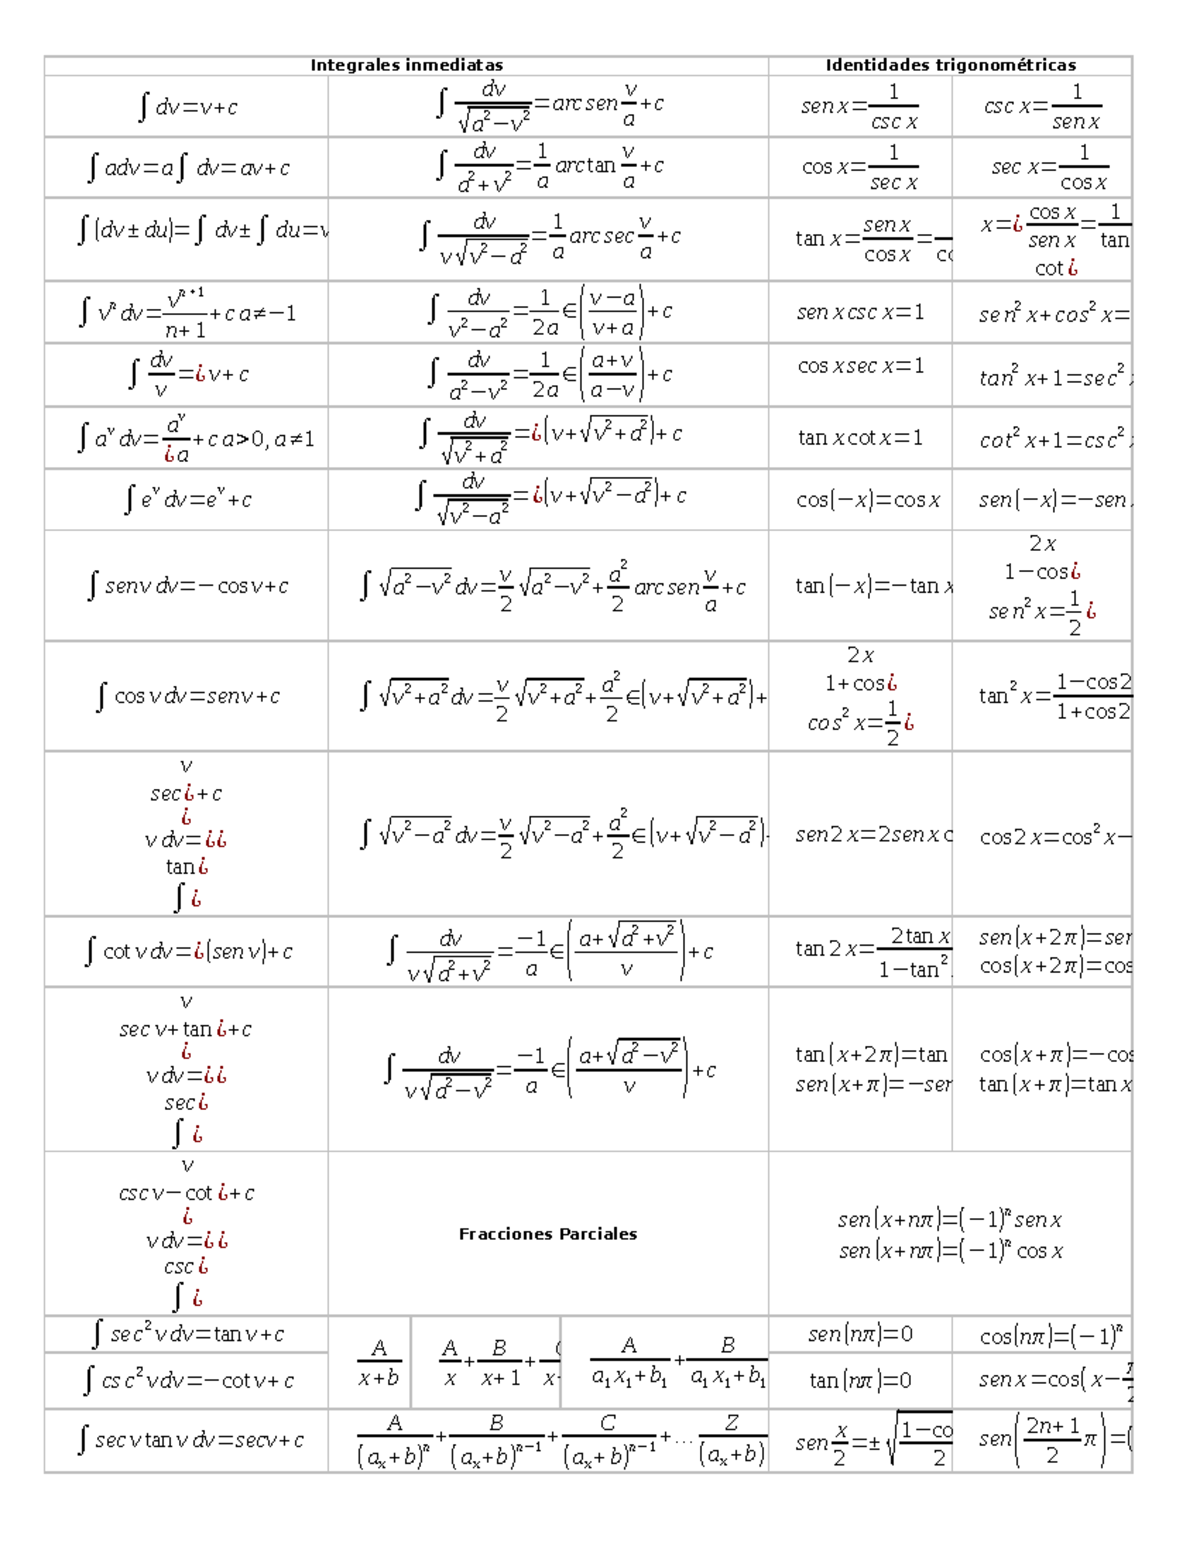 Integrales inmediatas Identidades trigonométricas
∫ dv=v+c ∫ dv/√(a²−v²)=arc sen v/a+c sen x=1/csc x csc x=1/sen x
∫ adv=a∫ dv=av+c ∫ dv/(a²+v²)=1/a arctan v/a+c cos x=1/sec x sec x=1/cos x
∫(dv±du)=∫ dv±∫ du=v ∫ dv/(v√(v²−a²))=1/a arc sec v/a+c tan x=sen x/cos x= x=¿ cos x/sen x=1/tan
cot ¿
∫ vⁿ dv=vⁿ⁺¹/(n+1)+c a≠−1 ∫ dv/(v²−a²)=1/2a ∈((v−a)/(v+a))+c sen x csc x=1 sen² x+cos² x=
∫ dv/v=¿ v+c ∫ dv/(a²−v²)=1/2a ∈((a+v)/(a−v))+c cos x sec x=1 tan² x+1=sec²
∫ aᵛ dv=aᵛ/¿a+c a>0, a≠1 ∫ dv/√(v²+a²)=¿(v+√(v²+a²))+c tan x cot x=1 cot² x+1=csc²
∫ eᵛ dv=eᵛ+c ∫ dv/√(v²−a²)=¿(v+√(v²−a²))+c cos(−x)=cos x sen(−x)=−sen
∫ sen v dv=−cos v+c ∫ √(a²−v²) dv=v/2 √(a²−v²)+a²/2 arc sen v/a+c tan(−x)=−tan x
2x
1−cos¿
sen² x=1/2 ¿
∫ cos v dv=sen v+c ∫ √(v²+a²) dv=v/2 √(v²+a²)+a²/2 ∈(v+√(v²+a²))+
2x
1+cos¿
cos² x=1/2 ¿
tan² x=(1−cos2)/(1+cos2)
v
sec¿+c
¿
v dv=¿¿
tan¿
∫ ¿
∫ √(v²−a²) dv=v/2 √(v²−a²)+a²/2 ∈(v+√(v²−a²)) sen 2x=2 sen x cos 2x=cos² x−
∫ cot v dv=¿(sen v)+c ∫ dv/(v√(a²+v²))=−1/a ∈((a+√(a²+v²))/v)+c tan 2x=2 tan x/(1−tan² sen(x+2π)=sen
cos(x+2π)=cos
v
sec v+tan¿+c
¿
v dv=¿¿
sec¿
∫ ¿
∫ dv/(v√(a²−v²))=−1/a ∈((a+√(a²−v²))/v)+c
tan(x+2π)=tan
sen(x+π)=−sen
cos(x+π)=−cos
tan(x+π)=tan x
v
csc v−cot¿+c
¿
v dv=¿¿
csc¿
∫ ¿
Fracciones Parciales
sen(x+nπ)=(−1)ⁿ sen x
sen(x+nπ)=(−1)ⁿ cos x
∫ sec² v dv=tan v+c sen(nπ)=0 cos(nπ)=(−1)ⁿ
A/(x+b) A/x+B/(x+1)+ A/(a₁x₁+b₁)+B/(a₁x₁+b₁
∫ csc² v dv=−cot v+c tan(nπ)=0 sen x=cos(x−
∫ sec v tan v dv=sec v+c A/(aₓ+b)ⁿ+B/(aₓ+b)ⁿ⁻¹+C/(aₓ+b)ⁿ⁻¹+…Z/(aₓ+b) sen x/2=±√((1−co/2 sen((2n+1)/2 π)=(